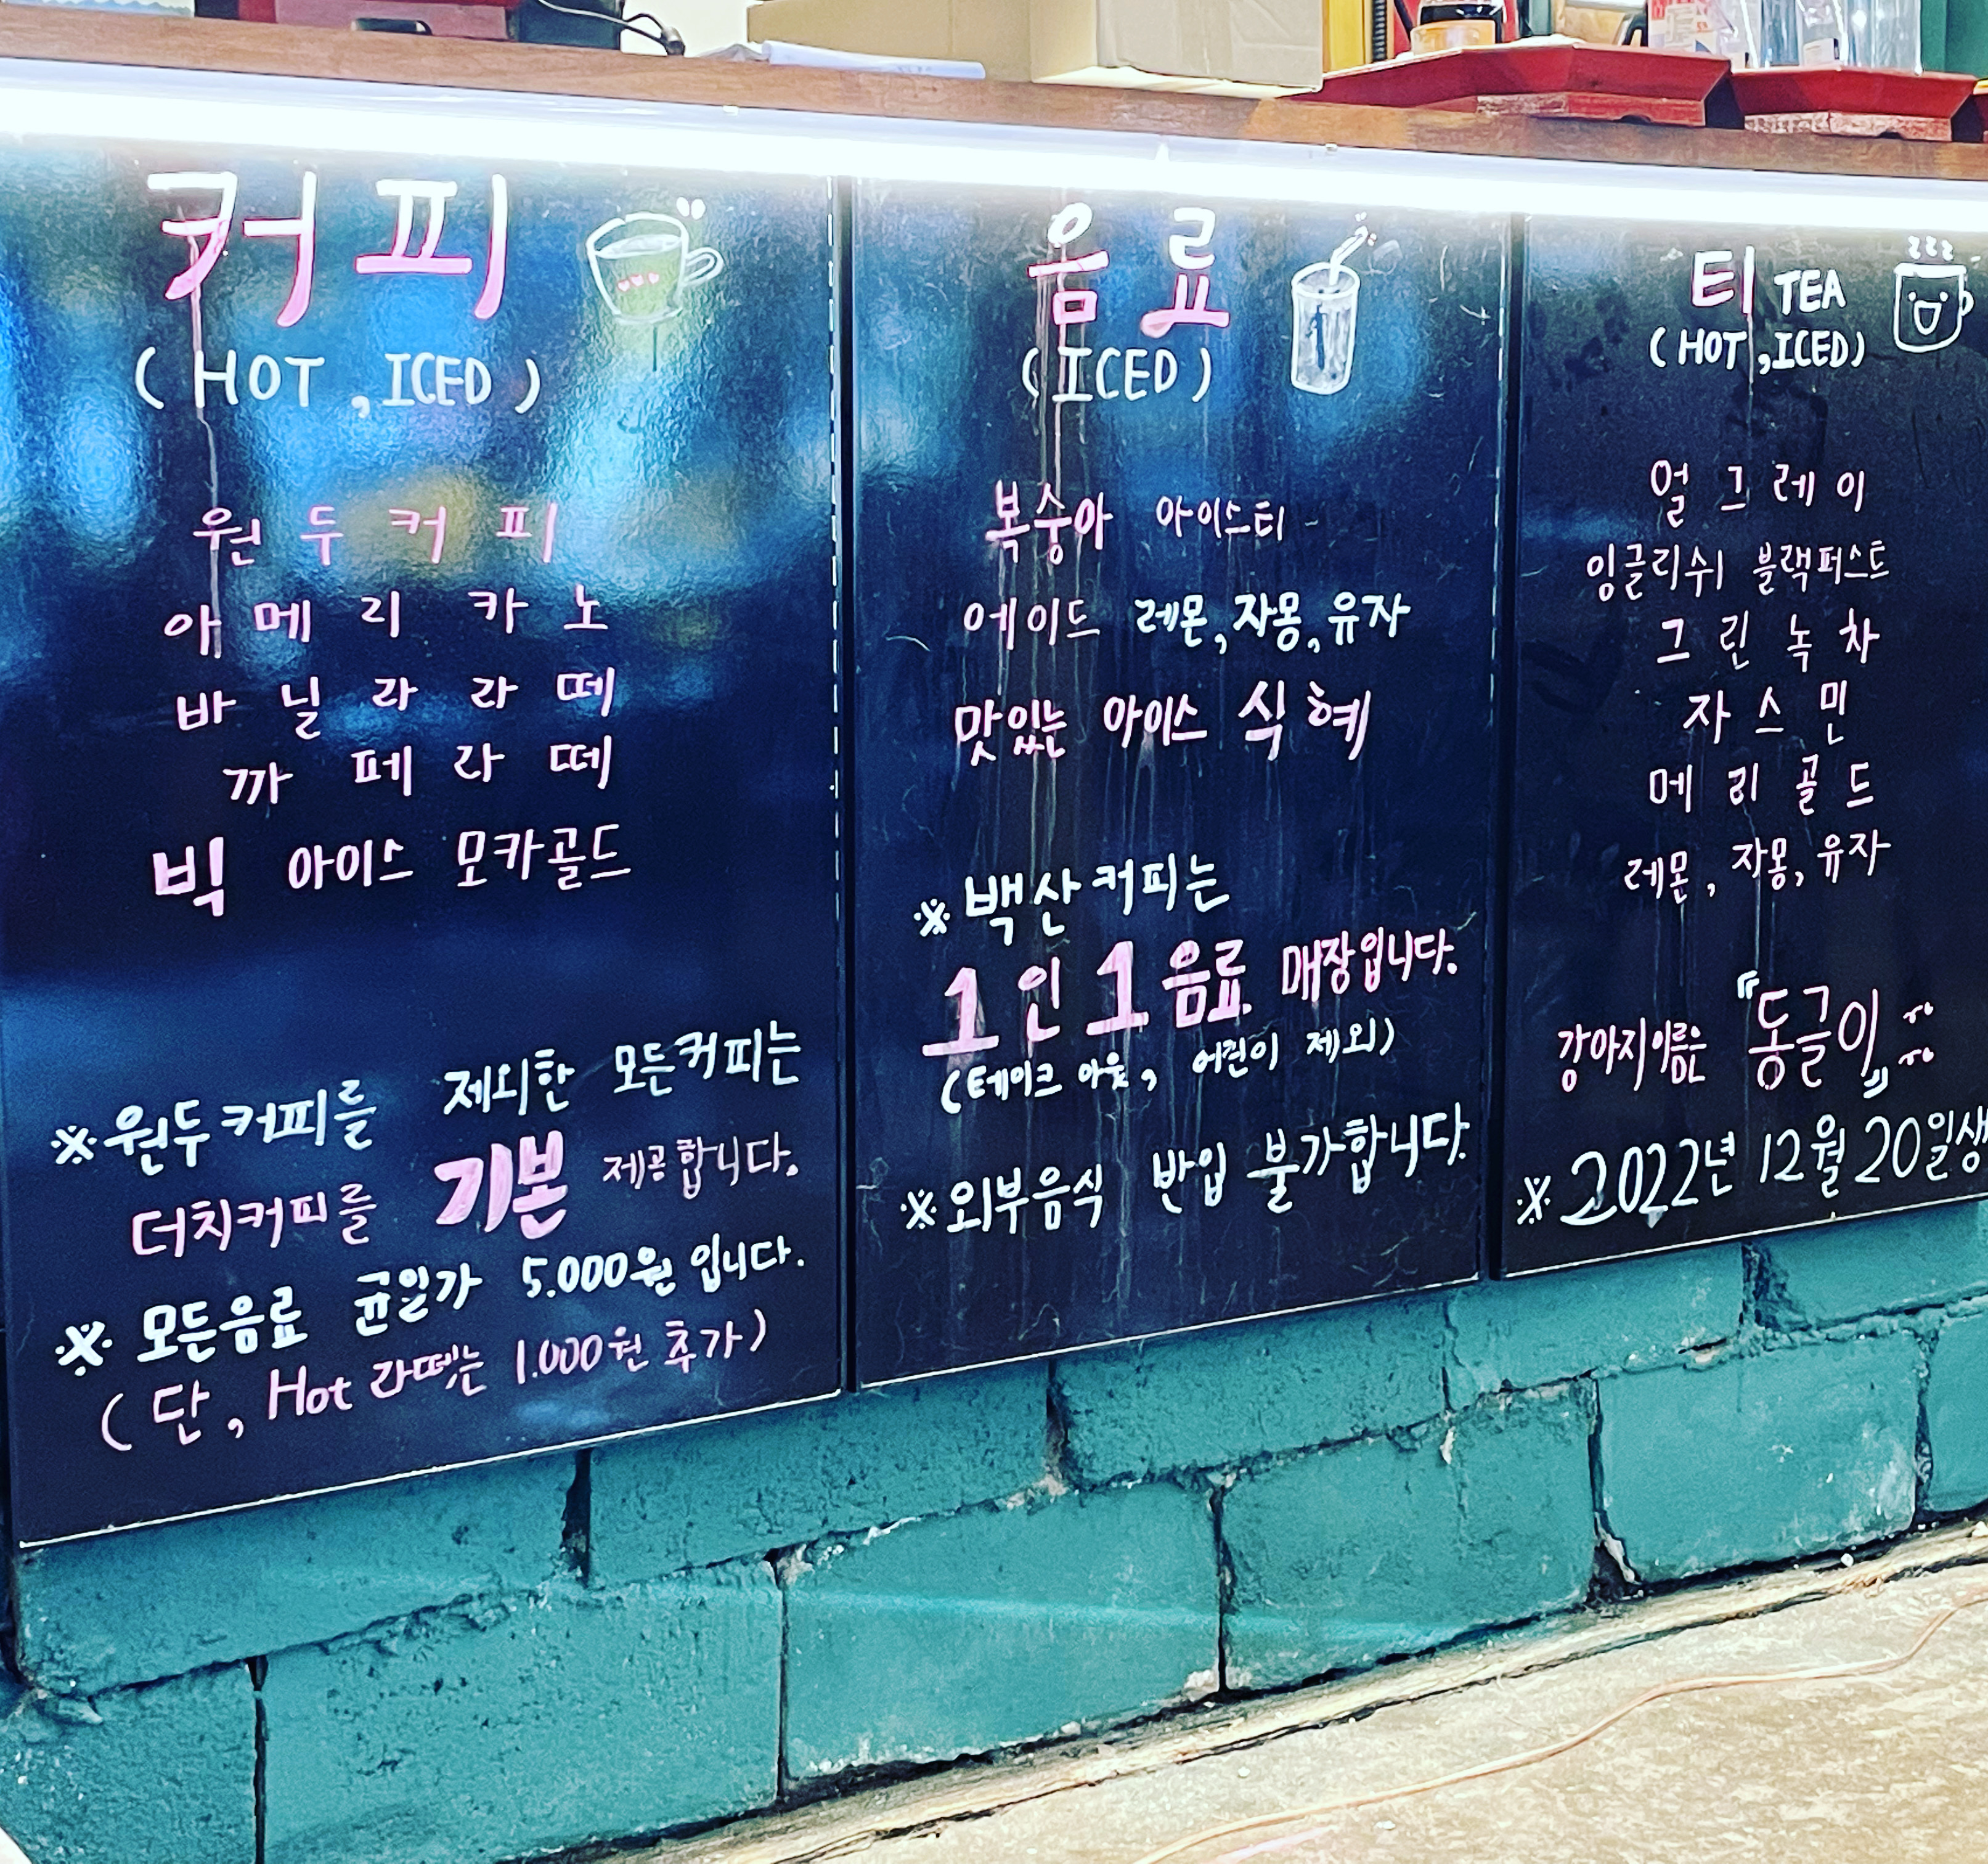 커피
(HOT, ICED)
원두커피
아메리카노
바닐라라떼
까페라떼
빅 아이스 모카골드
※원두커피를 제외한 모든커피는
더치커피를 기본 제공합니다.
※모든음료 균일가 5.000원 입니다.
(단, Hot 라떼는 1.000원 추가)
음료
(ICED)
복숭아 아이스티
에이드 레몬, 자몽, 유자
맛있는 아이스 식혜
※백산커피는
1인 1음료 매장입니다.
(테이크 아웃, 어린이 제외)
※외부음식 반입 불가합니다.
티 TEA
(HOT, ICED)
얼그레이
잉글리쉬 블랙퍼스트
그린녹차
자스민
메리골드
레몬, 자몽, 유자
강아지이름은 『동글이』
※2022년 12월 20일생